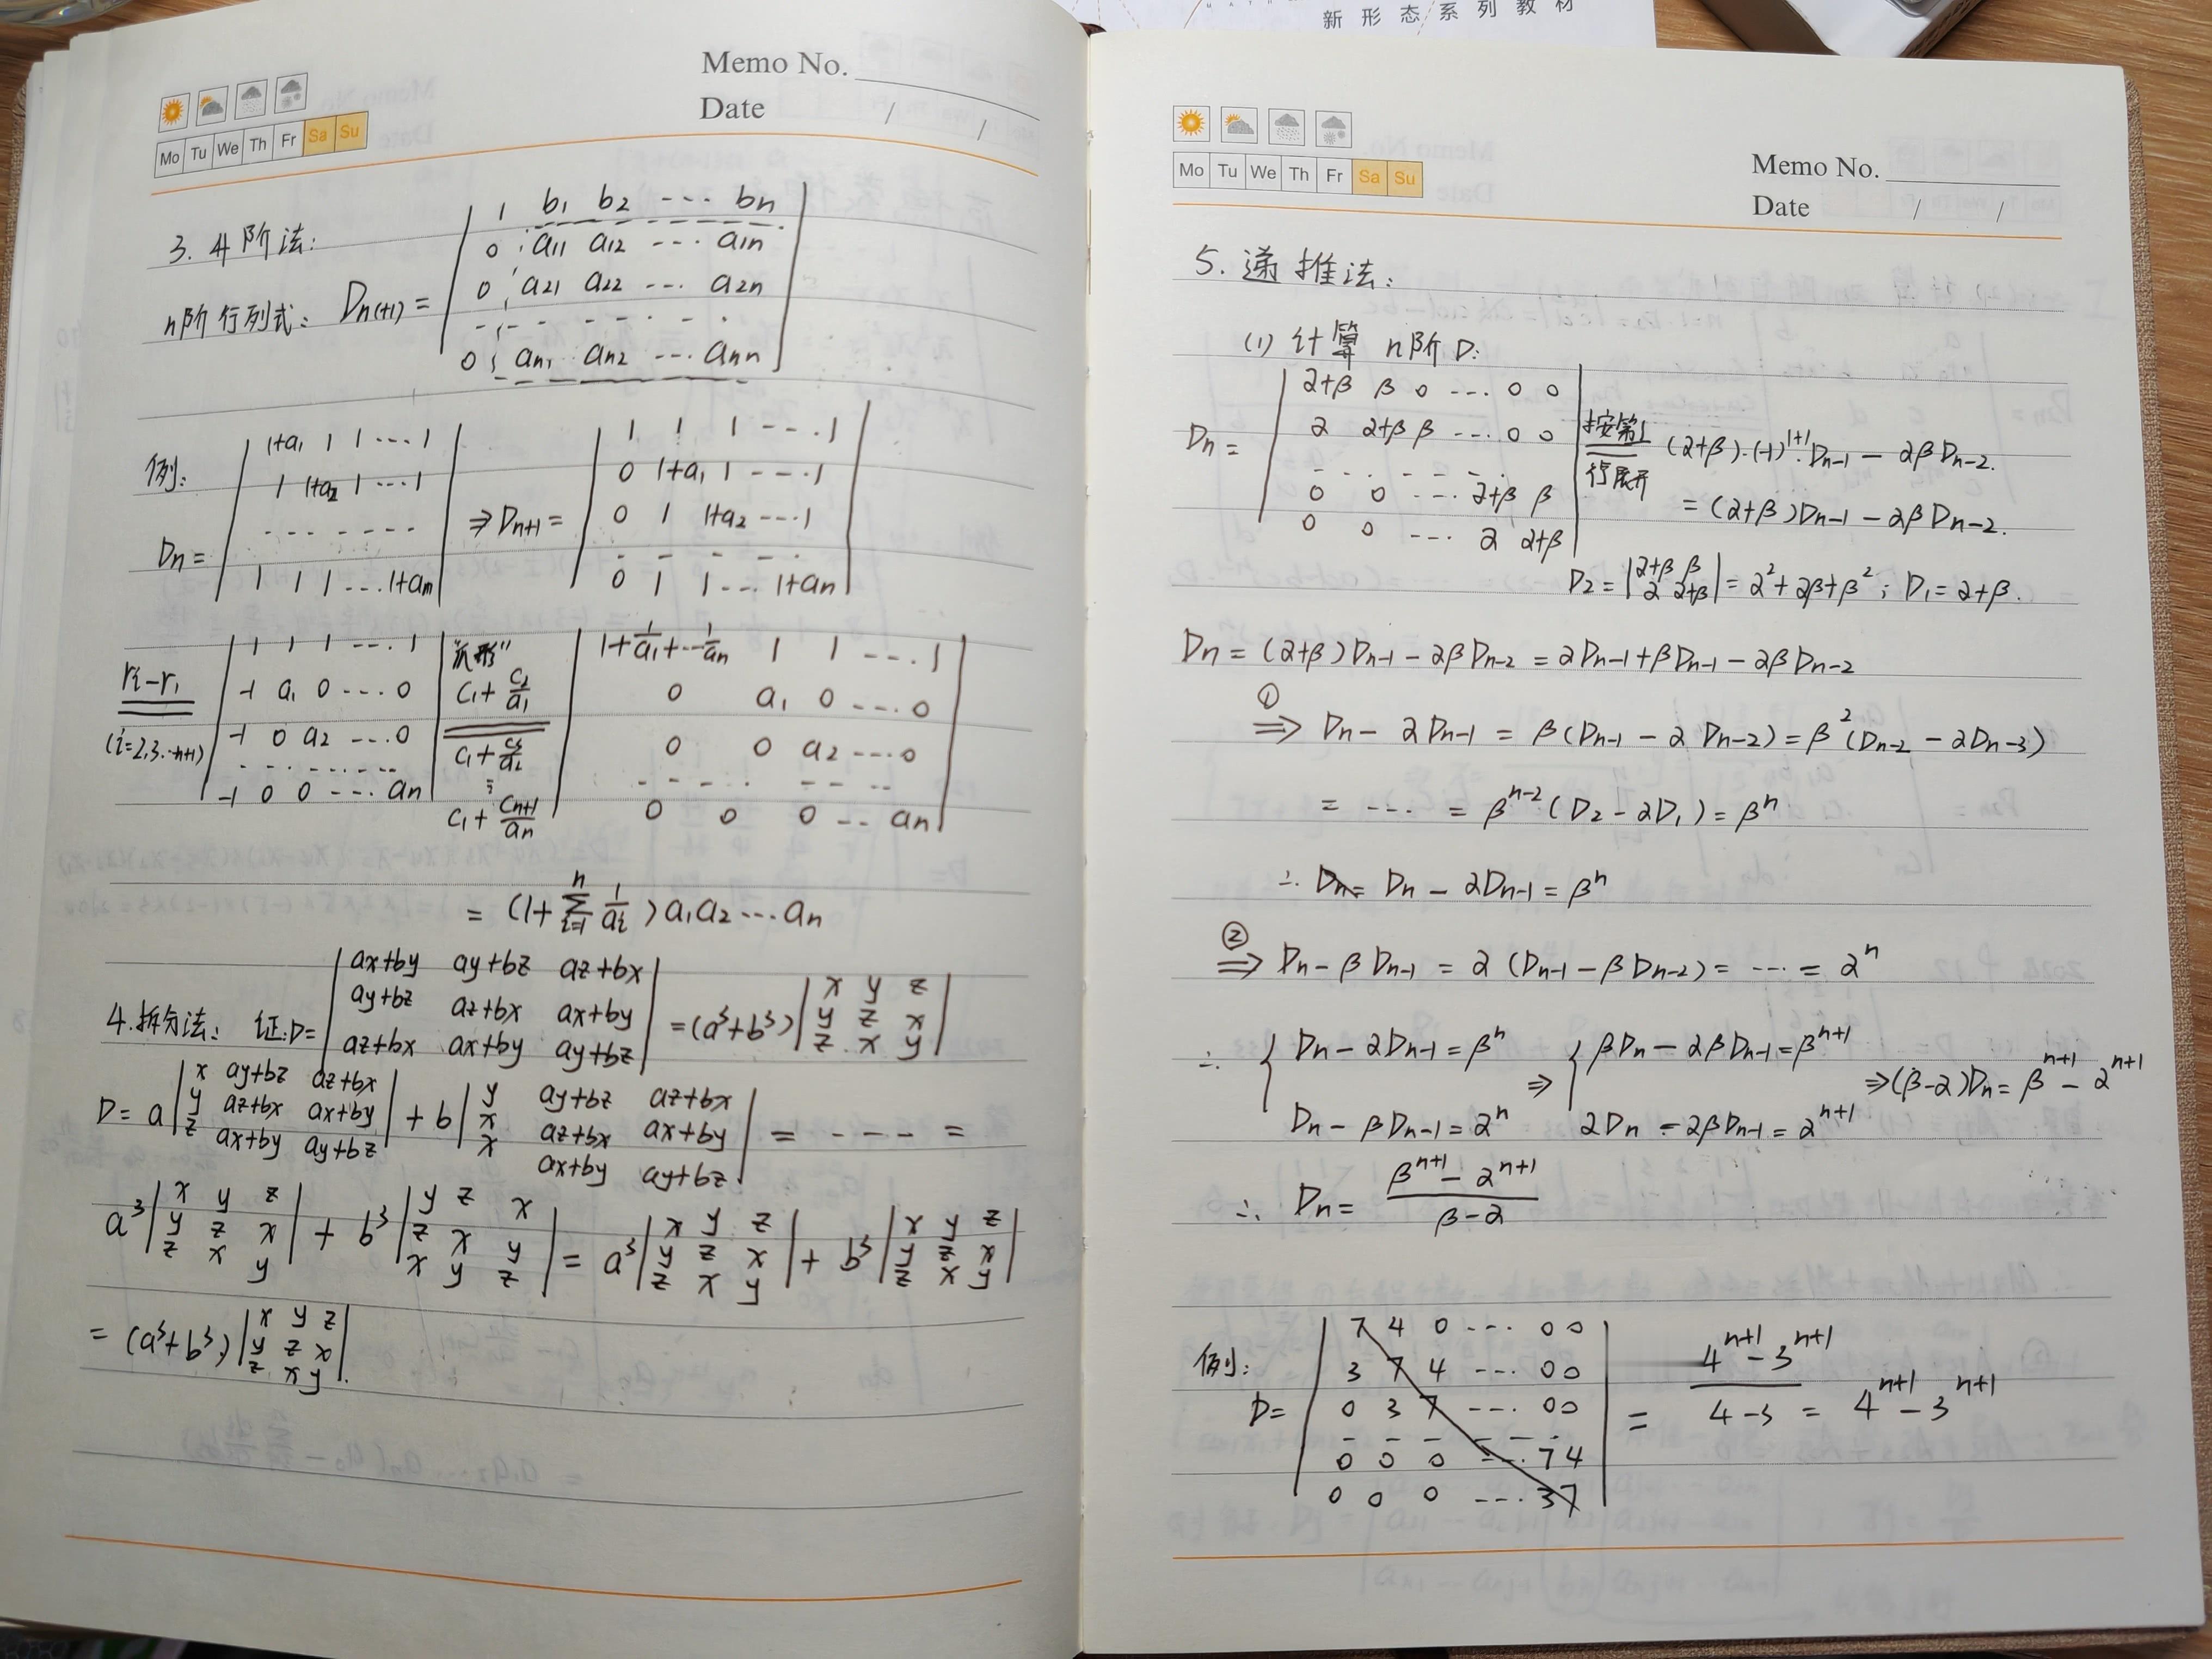 新形态系列教材
Memo No.
Date / /
Mo Tu We Th Fr Sa Su
3. 升阶法:
n阶行列式: Dn(+1) = | 1 b1 b2 ... bn |
| 0 a11 a12 ... a1n |
| 0 a21 a22 ... a2n |
| - - - - - - |
| 0 an1 an2 ... ann |
例:
Dn = | 1+a1 1 1 ... 1 |
| 1 1+a2 1 ... 1 |
| - - - - - - |
| 1 1 1 ... 1+an |
⇒ Dn+1 = | 1 1 1 ... 1 |
| 0 1+a1 1 ... 1 |
| 0 1 1+a2 ... 1 |
| - - - - - |
| 0 1 1 ... 1+an |
ri-r1
(i=2,3...n+1)
| 1 1 1 1 ... 1 |
| -1 a1 0 ... 0 |
| -1 0 a2 ... 0 |
| - - - - - - |
| -1 0 0 ... an |
"爪形"
c1 + c2/a1
c1 + c3/a2
⋮
c1 + cn+1/an
| 1+1/a1+...1/an 1 1 ... 1 |
| 0 a1 0 ... 0 |
| 0 0 a2 ... 0 |
| - - - - - - |
| 0 0 0 ... an |
= (1+ Σ(i=1→n) 1/ai ) a1a2...an
4.拆分法: 证:D= | ax+by ay+bz az+bx |
| ay+bz az+bx ax+by |
| az+bx ax+by ay+bz |
=(a³+b³) | x y z |
| y z x |
| z x y |
D= a | x ay+bz az+bx |
| y az+bx ax+by |
| z ax+by ay+bz |
+ b | y ay+bz az+bx |
| x az+bx ax+by |
| x ax+by ay+bz |
= - - - - =
a³ | x y z |
| y z x |
| z x y |
+ b³ | y z x |
| z x y |
| x y z |
= a³ | x y z |
| y z x |
| z x y |
+ b³ | x y z |
| y z x |
| z x y |
= (a³+b³) | x y z |
| y z x |
| z x y | .
Mo Tu We Th Fr Sa Su
Memo No.
Date / /
5. 递推法:
(1) 计算 n阶 D:
Dn = | α+β β 0 ... 0 0 |
| α α+β β ... 0 0 |
| - - - - - - |
| 0 0 ... α+β β |
| 0 0 ... α α+β |
按第1行展开 (α+β)·(-1)^(1+1)·Dn-1 - αβDn-2.
= (α+β)Dn-1 - αβDn-2.
D2 = | α+β β |
| α α+β |
= α²+αβ+β² ; D1=α+β.
Dn = (α+β)Dn-1 - αβDn-2 = αDn-1+βDn-1 - αβDn-2
①⇒ Dn - αDn-1 = β(Dn-1 - αDn-2) = β²(Dn-2 - αDn-3)
= ... = β^(n-2)(D2 - αD1) = β^n
∴ Dn= Dn - αDn-1 = β^n
②⇒ Dn - βDn-1 = α(Dn-1 - βDn-2) = ... = α^n
∴ { Dn - αDn-1 = β^n ⇒ { βDn - αβDn-1 = β^(n+1) ⇒ (β-α)Dn = β^(n+1) - α^(n+1)
Dn - βDn-1 = α^n αDn - αβDn-1 = α^(n+1)
∴ Dn = (β^(n+1) - α^(n+1))/(β-α)
例:
D= | 7 4 0 ... 0 0 |
| 3 7 4 ... 0 0 |
| 0 3 7 ... 0 0 |
| - - - - - - |
| 0 0 0 ... 7 4 |
| 0 0 0 ... 3 7 |
= (4^(n+1) - 3^(n+1))/(4-3) = 4^(n+1) - 3^(n+1)